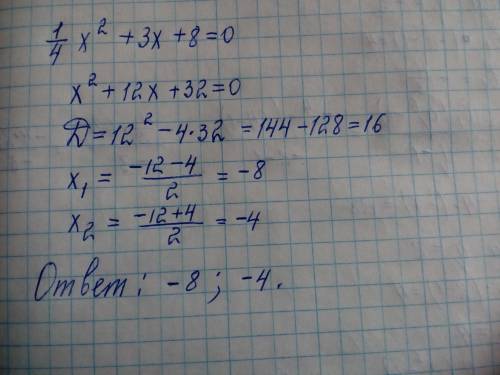 1/4 x² + 3x + 8 = 0
x² + 12x + 32 = 0
D = 12² - 4·32 = 144 - 128 = 16
x₁ = (-12-4)/2 = -8
x₂ = (-12+4)/2 = -4
Ответ: -8; -4.